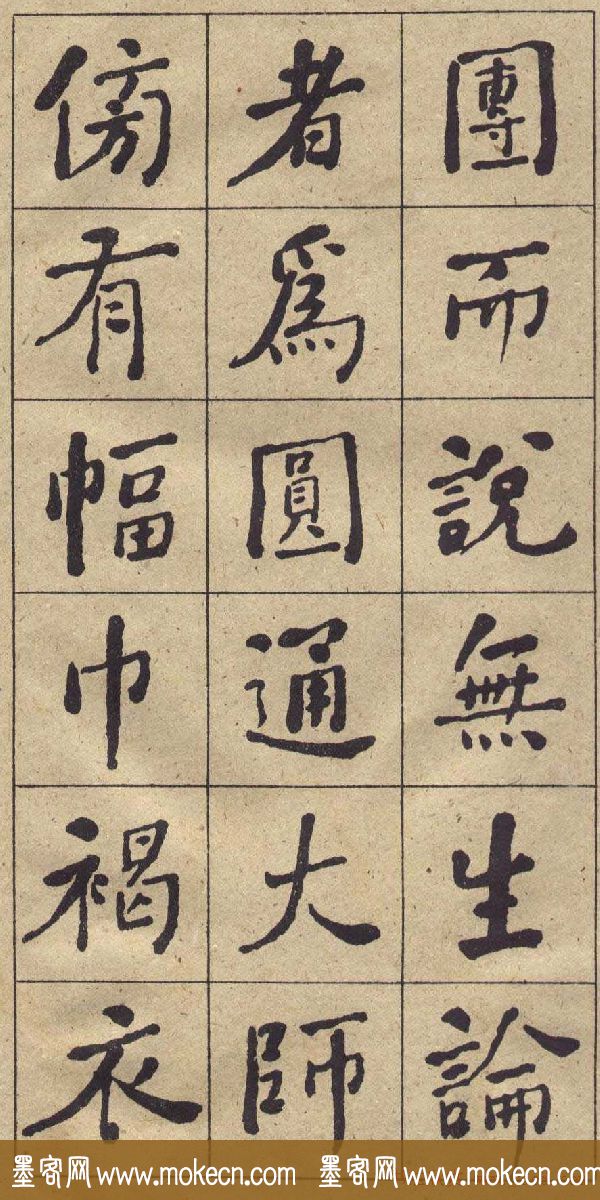 團而說無生論
者爲圓通大師
傍有幅巾褐衣
墨客网 www.mokecn.com 墨客网 www.mokecn.com